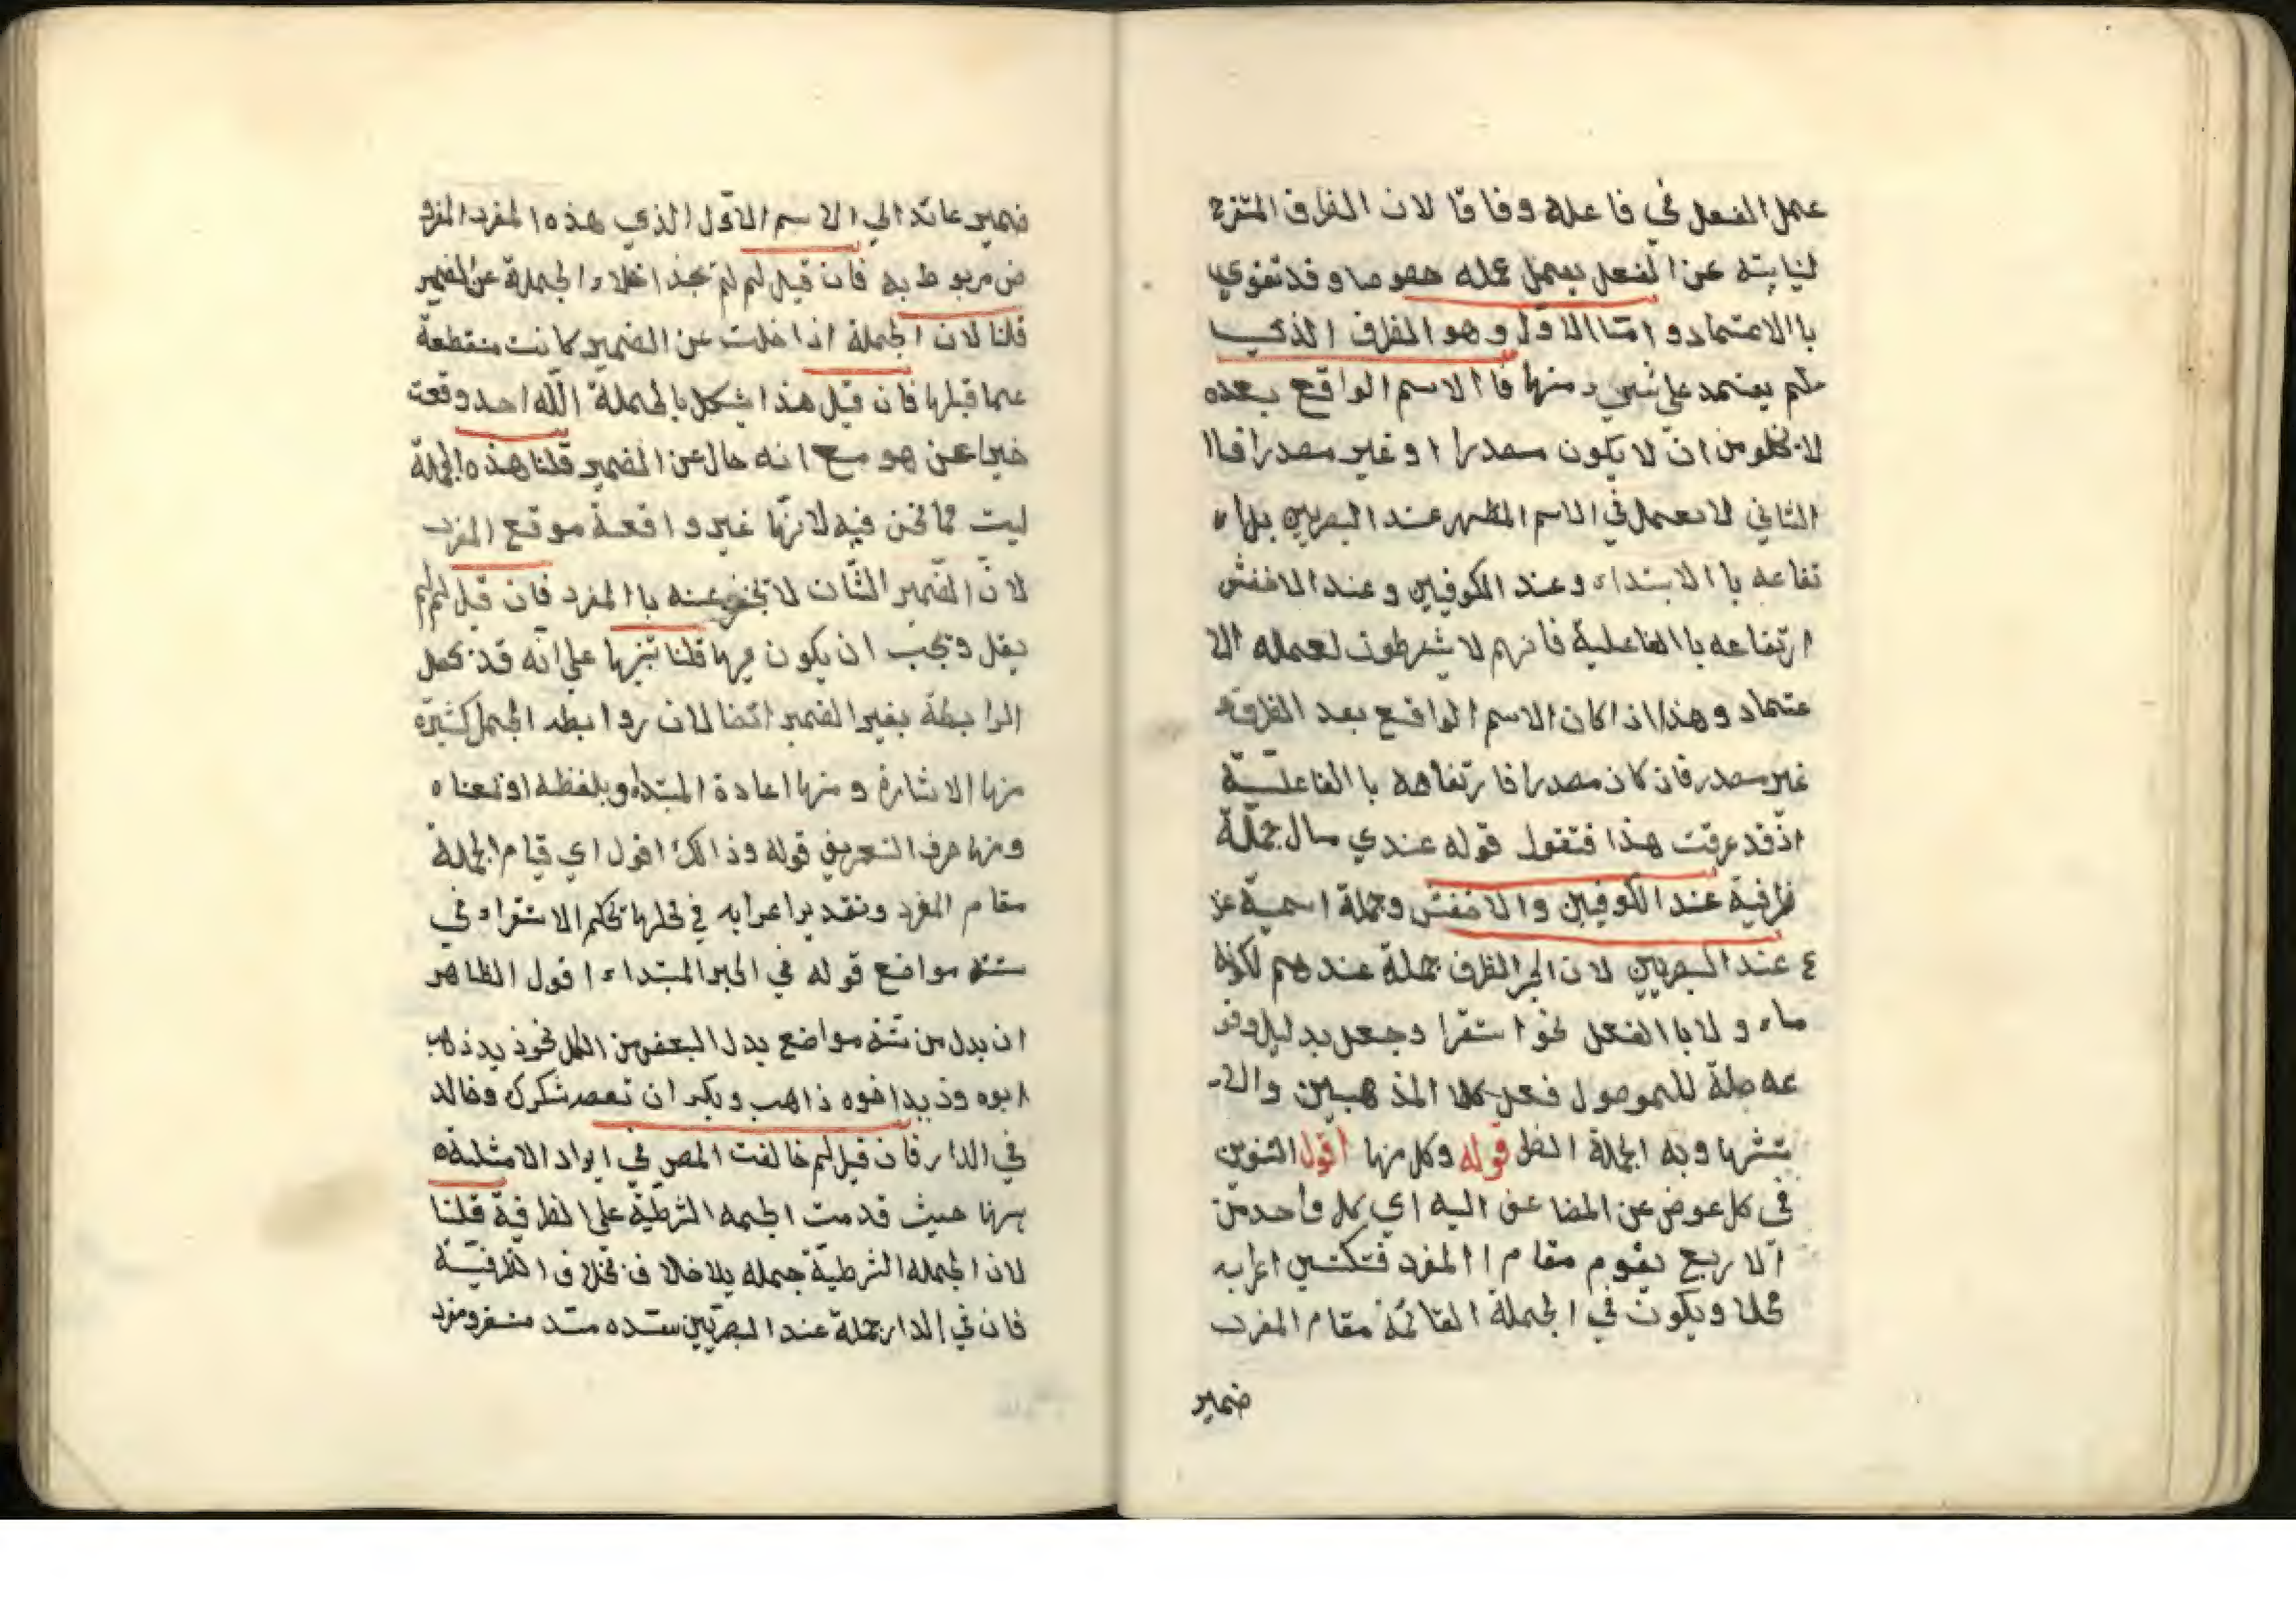 عمل الفعل في فاعله وفاقا لان الظرف المتفرع
لنيابته عن الفعل يعمل عمله هو وما وقد تقوي
با الاعتماد و امّا الاول وهو الظرف الذي
لم يعتمد على شيء منها فا الاسم الواقع بعده
لا يخلو من انّ لا يكون مصدرا او غير مصدر افاا
لثاني لا يعمل في الاسم المظهر عند البصريين بل ا
تفاعه با الابتداء وعند الكوفيين وعند الاخفش
ارتفاعه با الفاعلية فانهم لا يشرطون لعمله الا
عتماد وهذا اذا كان الاسم الواقع بعد الظرف
غير مصدر فان كان مصدرا فا رتفاعه با الفاعليّة
اذ قد عرفت هذا فتقول قوله عندي مال جملة
ظرفية عند الكوفيين والاخفش وجملة اسمية
عند البصريين لان الظرف جملة عندهم لكونه
ولا با الفعل نحو استقرا وجعل بدليل وقو
عه صلة للموصول فعل كلا المذهبين والا
قوله وكل منها اقول التنوين
في كل عوض عن المضا عف اليه اي كل واحد من
الا ربع يقوم مقام ا المفرد فتكتسي اعرابه
محلا ويكون في الجملة القائمة مقام المفرد
ضمير
ضمير عائد الي الا سم الاول الذي هذه المفرد المفرو
ض مربوط به فان قيل لم لم يجز اخلاء الجملة عن الضمير
قلنا لان الجملة اذا خلت عن الضمير كانت منقطعة
عما قبلها فان قيل هذا يشكل بالجملة اللّه احد وقعت
خبرا عن هو مع انه خال عن الضمير قلنا هذه الجملة
ليت مما نحن فيه لانّها غير واقعة موقع المفرد
لانّ الضمير الشّان لا يخبر عنه با المفرد فان قيل لم لم
يقل ويجب ان يكون فيها قلنا تنبيها علي انّه قد يحصل
الرا بطة بغير الضمير ايضا لان روا بط الجمل كثيرة
منها الاشارة و منها اعادة المبتداء بلفظه او بمعناه
ومنها حرف التعريف قوله وذالك اقول اي قيام الجملة
مقام المفرد وتقدير اعرابه في محلها بحكم الاستقراء في
ستة مواضع قوله في الخبر المبتداء اقول الظاهر
ان بدل من ستة مواضع بدل البعض من الكل نحو زيد ذاهب
ابوه وزيد اخوه ذاهب وبكر ان تعصر شكرك وخالد
في الدار فان قيل لم خالفت المص في ايراد الامثلة
ههنا حيث قدمت الجمله الشرطيّة على الظرفية قلنا
لان الجمله الشرطيّة جمله بلا خلاف بخلاف الظرفيّة
فان في الدار جملة عند البصريّين